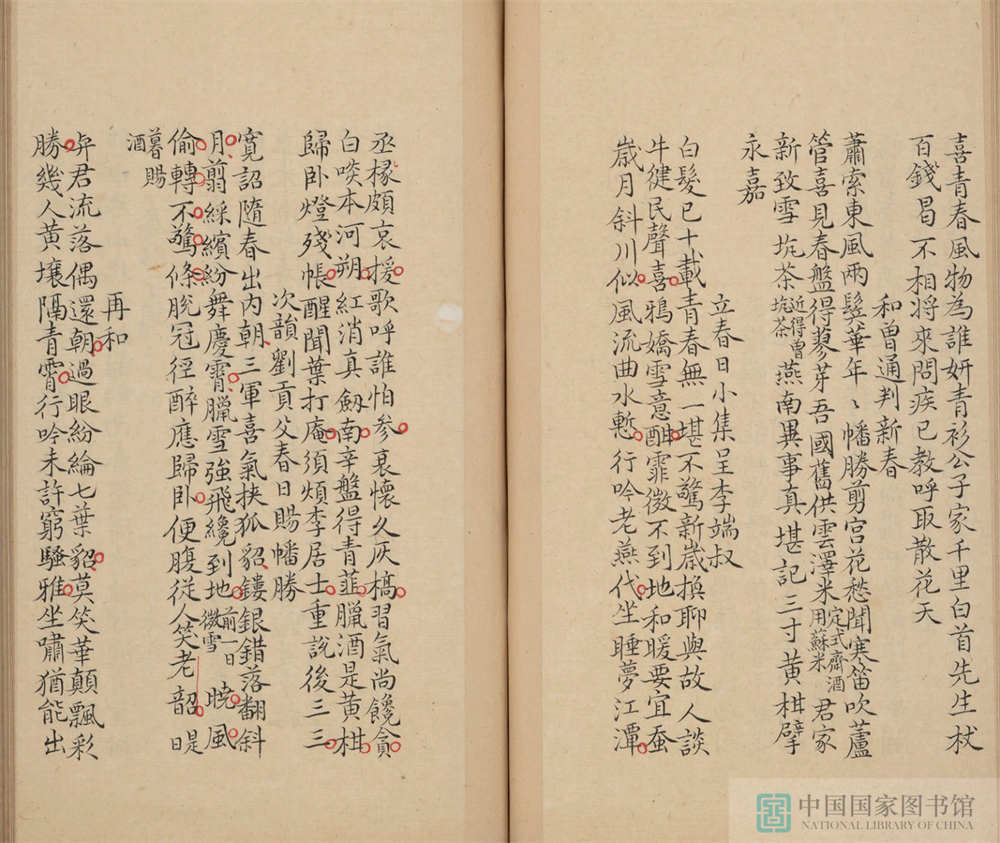 喜青春風物為誰妍青衫公子家千里白首先生杖
百錢曷不相將來問疾已教呼取散花天
和曾通判新春
蕭索東風兩鬓華年〻幡勝剪宮花愁聞寒笛吹蘆
管喜見春盤得蓼芽吾國舊供雲澤米定式齊酒用蘇米君家
新致雪坑茶近得曾坑茶燕南異事真堪記三寸黃柑擘
永嘉
立春日小集呈李端叔
白髮已十載青春無一堪不驚新歲換聊與故人談
牛健民聲喜鴉嬌雪意酣霏微不到地和暖要宜蚕
歲月斜川似風流曲水慙行吟老燕代坐睡夢江潭
丞掾頗哀援歌呼誰怕參衰懷久灰槁習氣尚饞貪
白啖本河朔紅消真劔南辛盤得青韮臘酒是黃柑
歸卧燈殘帳醒聞葉打庵須煩李居士重說後三三
次韻劉貢父春日賜幡勝
寛詔隨春出內朝三軍喜氣挾狐貂鏤銀錯落翻斜
月翦綵繽紛舞慶霄臘雪強飛纔到地前一日微雪曉風
偷轉不驚條脫冠徑醉應歸卧便腹從人笑老韶是日
暮賜酒
再和
弁君流落偶還朝過眼紛綸七葉貂莫笑華顛飄彩
勝幾人黃壤隔青霄行吟未許窮騷雅坐嘯猶能出
中国国家图书馆
NATIONAL LIBRARY OF CHINA